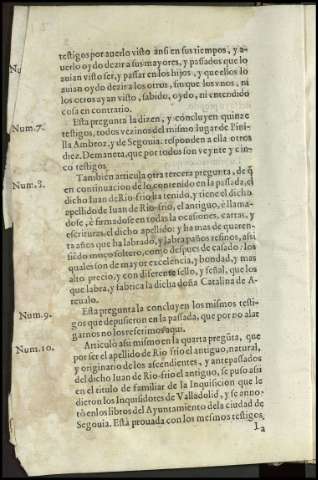 testigos por auerlo visto ansi en sus tiempos, y a-
uerlo oydo dezir a sus mayores, y passados que lo
auian visto ser, y passar en los hijos, y que ellos lo
auian oydo dezir a los otros, sin que los vnos, ni
los otros ayan visto, sabido, oydo, ni entendido
cosa en contrario.
Num. 7. Esta pregunta la dizen, y concluyen quinze
testigos, todos vezinos del mismo lugar de Pini-
lla Ambroz, y de Segouia. responden a ella otros
diez. De manera, que por todos son veynte y cin-
co testigos.
Num. 8. Tambien articula otra tercera pregunta, de q̃
en continuacion de lo contenido en la passada, el
dicho Iuan de Rio-frio ha tenido, y tiene el dicho
apellido de Iuan de Rio-frio, el antiguo, e llama-
dose, è firmadose en todas la ocasiones, cartas, y
escrituras, el dicho apellido: y ha mas de quaren-
ta años que ha labrado, y labra paños refinos, assi
siẽdo moço soltero, como despues de casado: los
quales son de mayor excelencia, y bondad, y mas
alto precio, y con diferente sello, y señal, que los
que labra, y fabrica la dicha doña Catalina de A-
reualo.
Num. 9. Esta pregunta la concluyen los mismos testi-
gos que depusieron en la passada, que por no alar
garnos no los referimos aqui.
Num. 10. Articulo assi mismo en la quarta pregũta, que
por ser el apellido de Rio frio el antiguo, natural,
y originario de los ascendientes, y antepassados
del dicho Iuan de Rio-frio el antiguo, se puso assi
en el titulo de familiar de la Inquisicion que le
dieron los Inquisidores de Valladolid, y se anno-
tò en los libros del Ayuntamiento de la ciudad de
Segouia. Està prouada con los mesmos testigos.
La